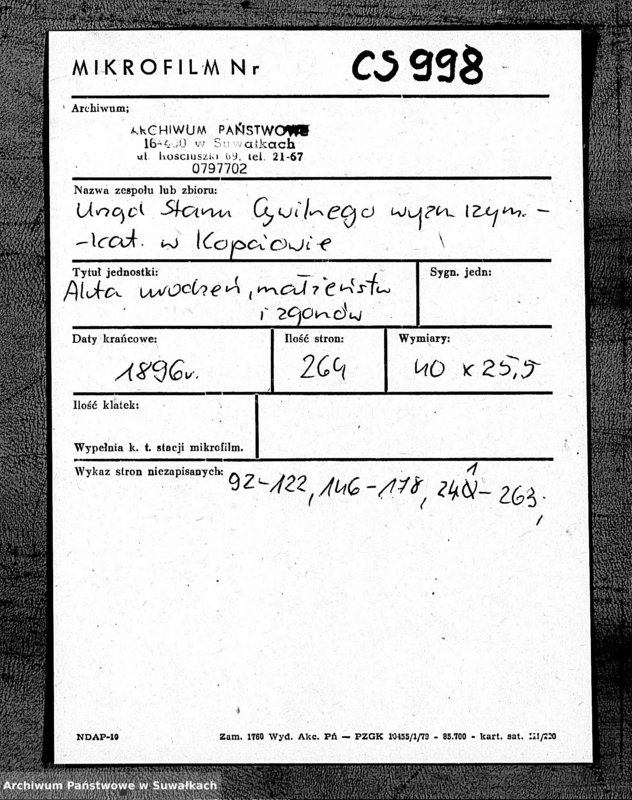 MIKROFILM Nr CS 998
Archiwum;
ARCHIWUM PAŃSTWOWE
16-400 w Suwałkach
ul. Kościuszki 69, tel. 21-67
0797702
Nazwa zespołu lub zbioru:
Urząd Stanu Cywilnego wyzn. rzym.-
-kat. w Kopciowie
Tytuł jednostki:
Sygn. jedn:
Akta urodzeń, małżeństw
i zgonów
Daty krańcowe:
Ilość stron:
Wymiary:
1896r.
264
40 x 25,5
Ilość klatek:
Wypełnia k. t. stacji mikrofilm.
Wykaz stron niezapisanych: 92-122, 146-178, 241-263;
NDAP-19
Zam. 1760 Wyd. Akc. Pń — PZGK 10455/1/79 - 85.700 - kart. sat. III/220
Archiwum Państwowe w Suwałkach